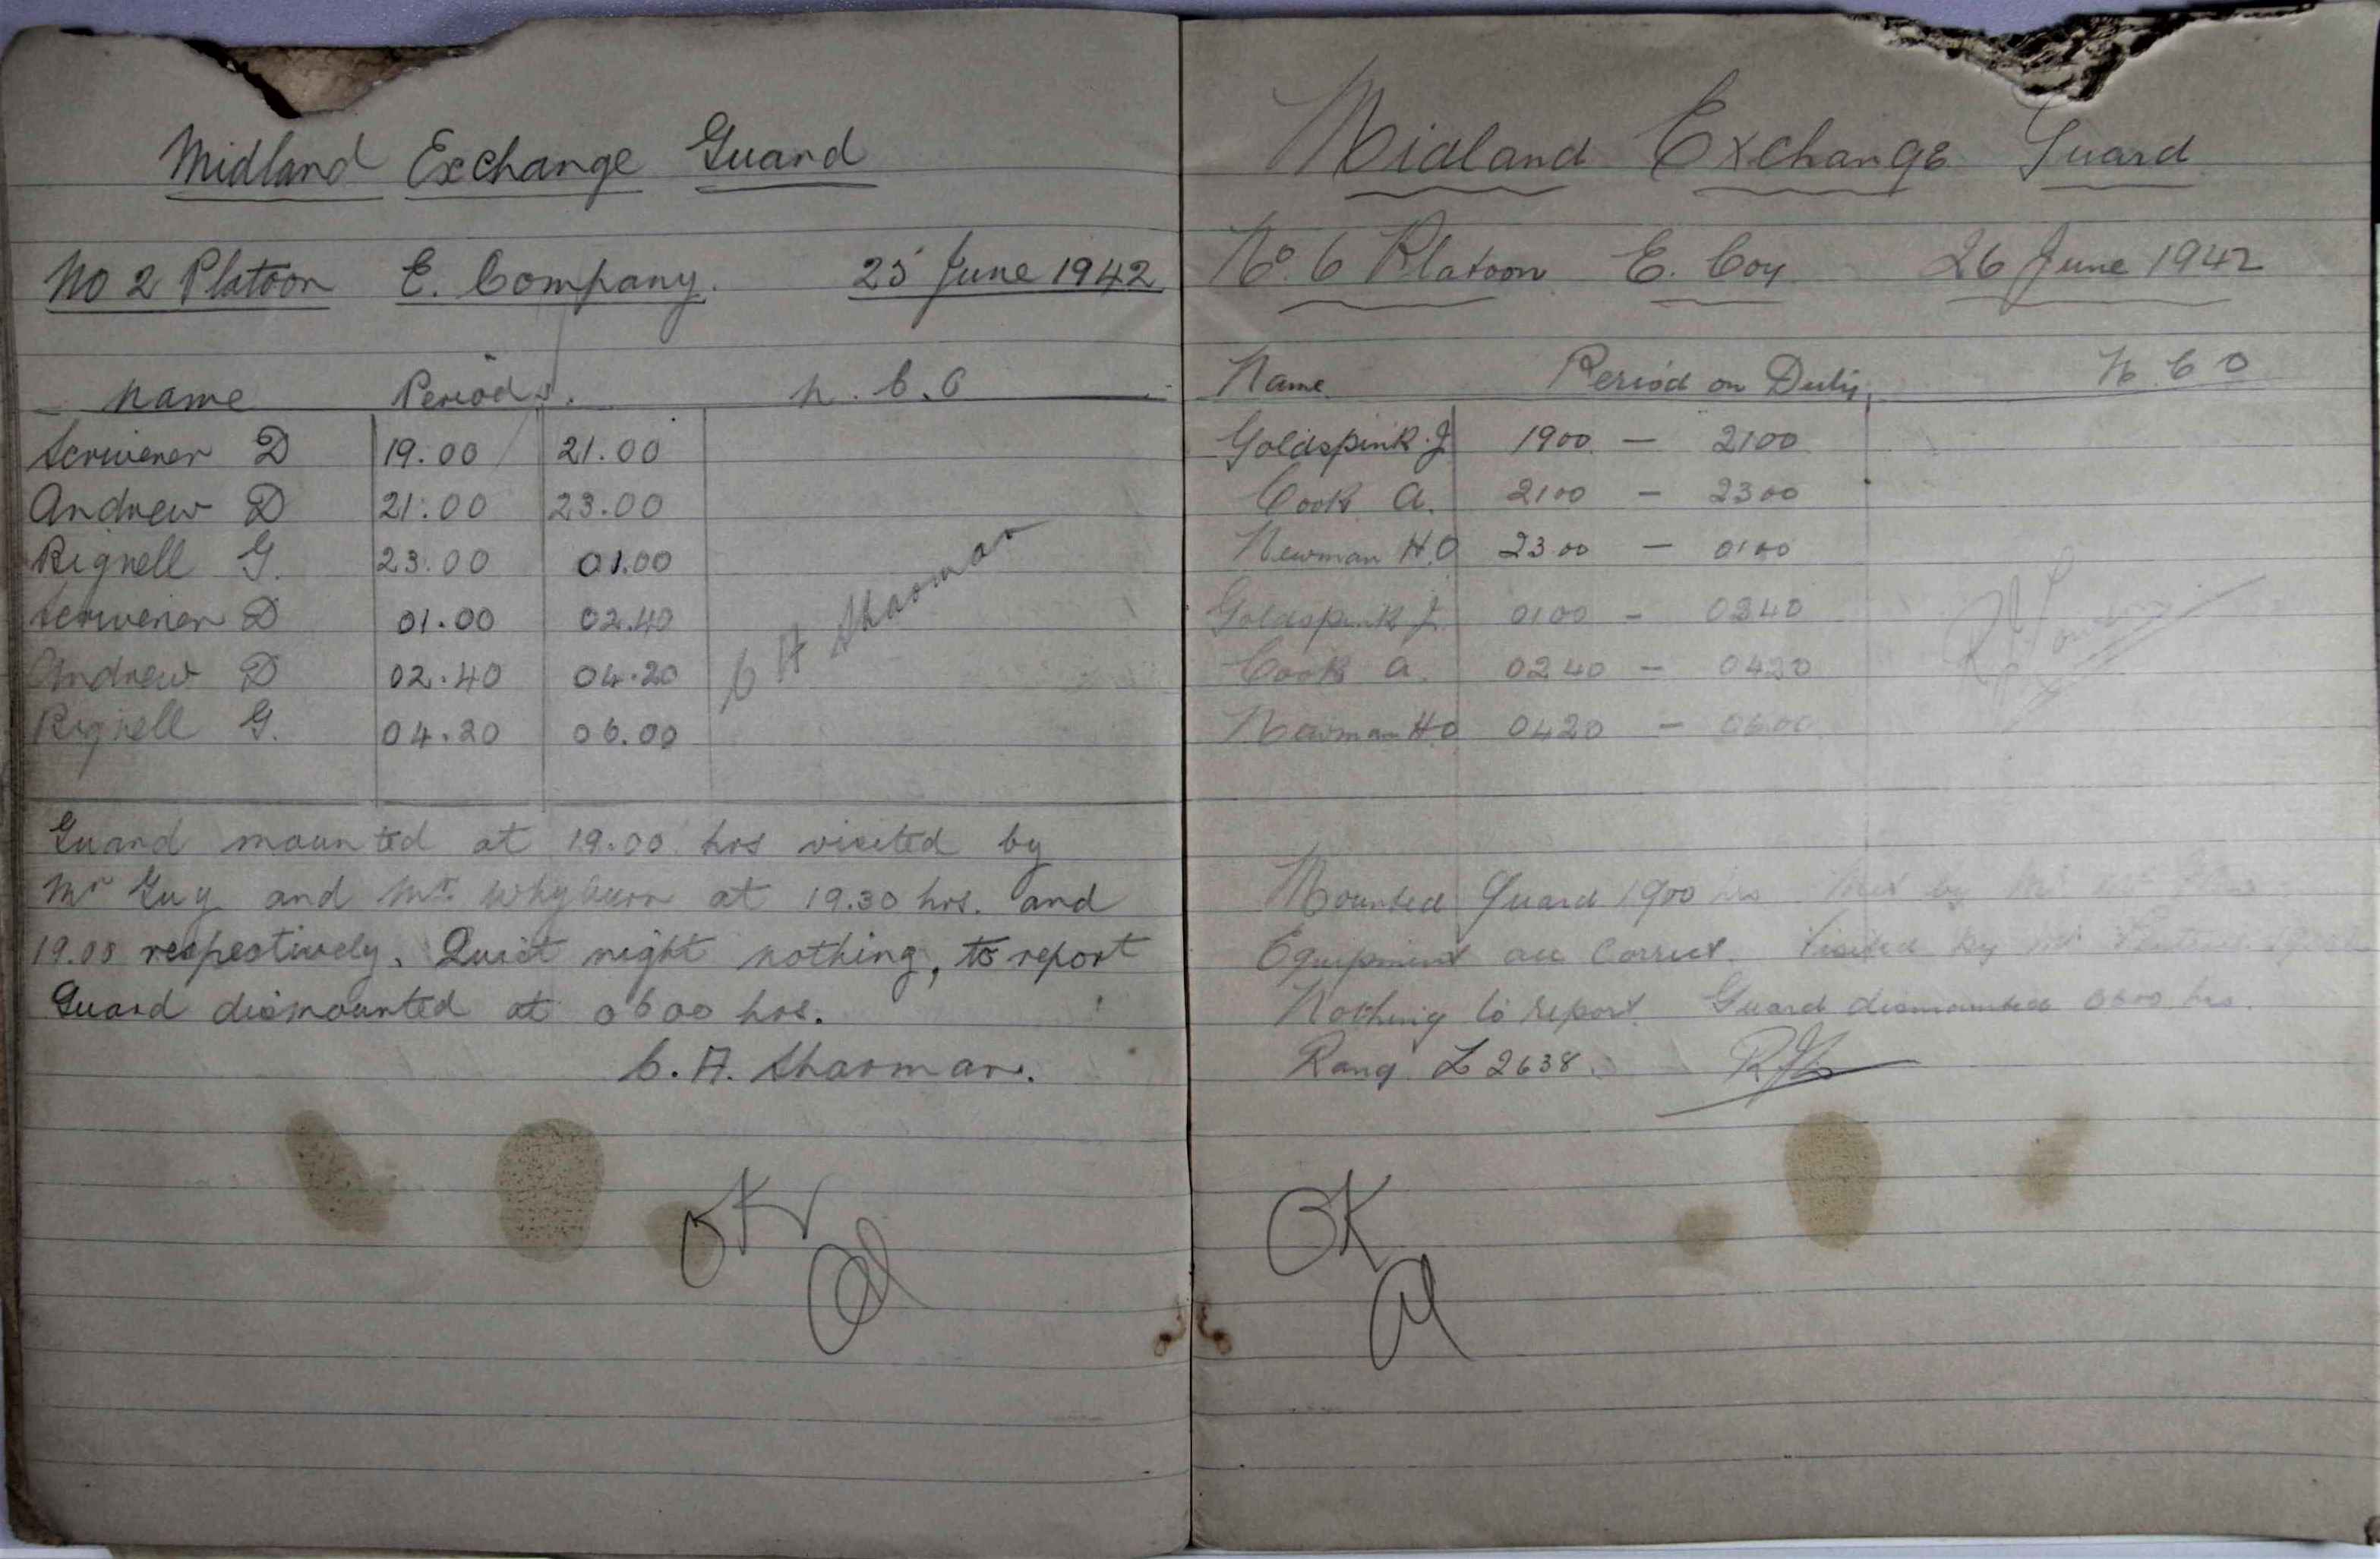 Midland Exchange Guard
No 2 Platoon E. Company. 25 June 1942
Name Periods. N.C.O
Scrivener D 19.00 21.00
Andrew D 21.00 23.00
Rignell G. 23.00 01.00
Scrivener D 01.00 02.40
Andrew D 02.40 04.20
Rignell G. 04.20 06.00
C H Sharman
Guard mounted at 19.00 hrs visited by
Mr Guy and Mr. at 19.30 hrs. and
19.08 respectively. Quiet night nothing, to report
Guard dismounted at 0600 hrs.
C. H. Sharman.
OK
Midland Exchange Guard
No. 6 Platoon E. Coy 26 June 1942
Name Period on Duty N C O
Goldspink J 1900 - 2100
Cook A. 2100 - 2300
Newman H.O 2300 - 0100
Goldspink J. 0100 - 0240
Cook A. 0240 - 0420
Newman H.O 0420 - 0600
Mounted Guard 1900 hrs by
Equipment all correct. Visited by Mr
Nothing to report. Guard dismounted 0600 hrs.
Rang L 2638.
OK